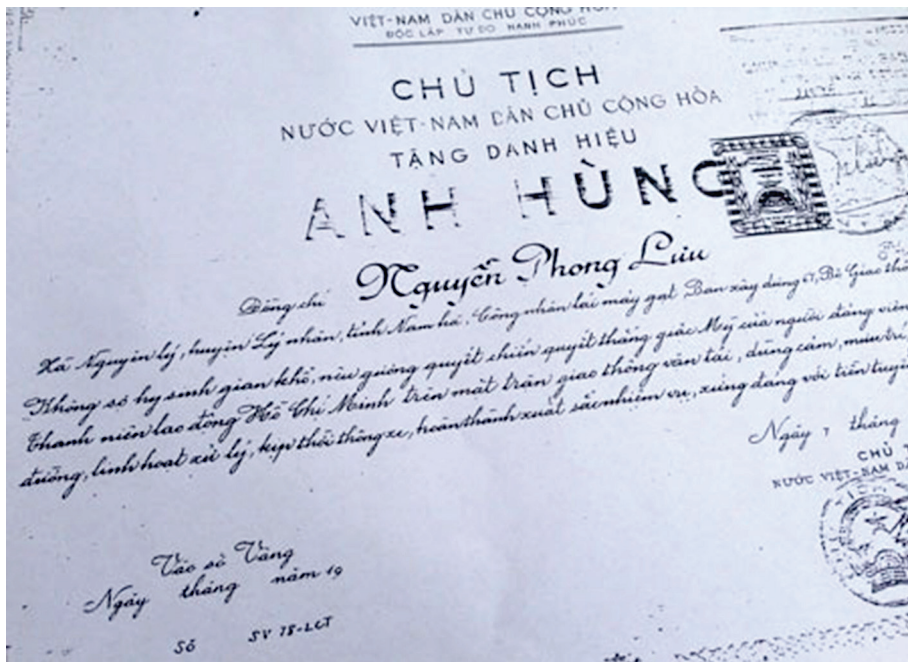 VIỆT-NAM DÂN CHỦ CỘNG HÒA
ĐỘC LẬP TỰ DO HẠNH PHÚC
CHỦ TỊCH
NƯỚC VIỆT-NAM DÂN CHỦ CỘNG HÒA
TẶNG DANH HIỆU
ANH HÙNG
Đồng chí Nguyễn Phong Lưu
Xã Nguyên lý, huyện Lý nhân, tỉnh Nam hà. Công nhân lái máy gạt Ban xây dựng 67, Bộ Giao thô
Không sợ hy sinh gian khổ, nêu gương quyết chiến quyết thắng giặc Mỹ của người đảng viên
Thanh niên lao động Hồ Chí Minh trên mặt trận giao thông vận tải, dũng cảm, mưu trí
đường, linh hoạt xử lý, kịp thời thông xe, hoàn thành xuất sắc nhiệm vụ, xứng đáng với tiền tuyến
Ngày 7 tháng
CHỦ T
NƯỚC VIỆT-NAM DÂ
Vào sổ Vàng
Ngày tháng năm 19
Số SV 78-LCT